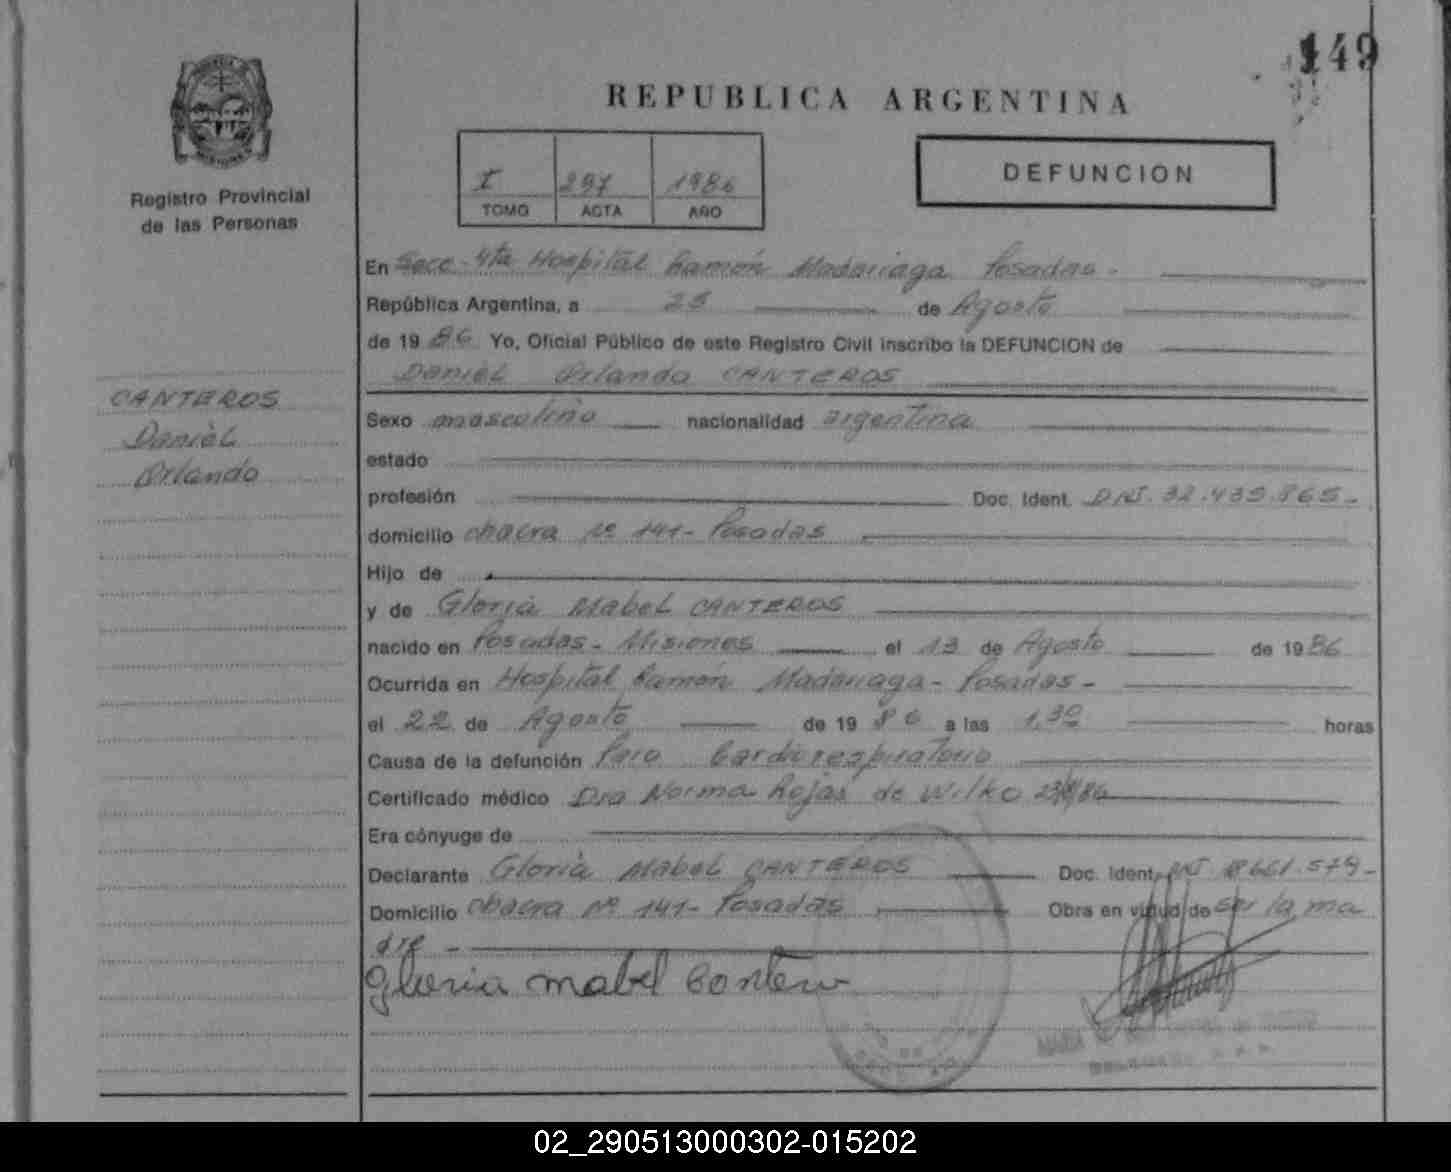 149
REPUBLICA ARGENTINA
I 297 1986
TOMO ACTA AÑO
DEFUNCION
Registro Provincial
de las Personas
CANTEROS
Daniel
Orlando
En Secc. 4ta Hospital Ramón Madariaga Posadas -
República Argentina, a 25 de Agosto
de 19 86 Yo, Oficial Público de este Registro Civil inscribo la DEFUNCION de
Daniel Orlando CANTEROS
Sexo masculino nacionalidad argentina
estado
profesión Doc. Ident. DNI. 32.435.865-
domicilio chacra Nº 141- Posadas
Hijo de
y de Gloria Mabel CANTEROS
nacido en Posadas - Misiones el 13 de Agosto de 1986
Ocurrida en Hospital Ramón Madariaga - Posadas -
el 22 de Agosto de 19 86 a las 1,30 horas
Causa de la defunción Paro Cardiorespiratorio
Certificado médico Dra Norma Rojas de Wilko 23/8/86
Era cónyuge de
Declarante Gloria Mabel CANTEROS Doc. Ident. DNI. 18.661.579-
Domicilio chacra Nº 141- Posadas Obra en virtud de ser la ma
dre -
Gloria mabel Cantero
02_290513000302-015202